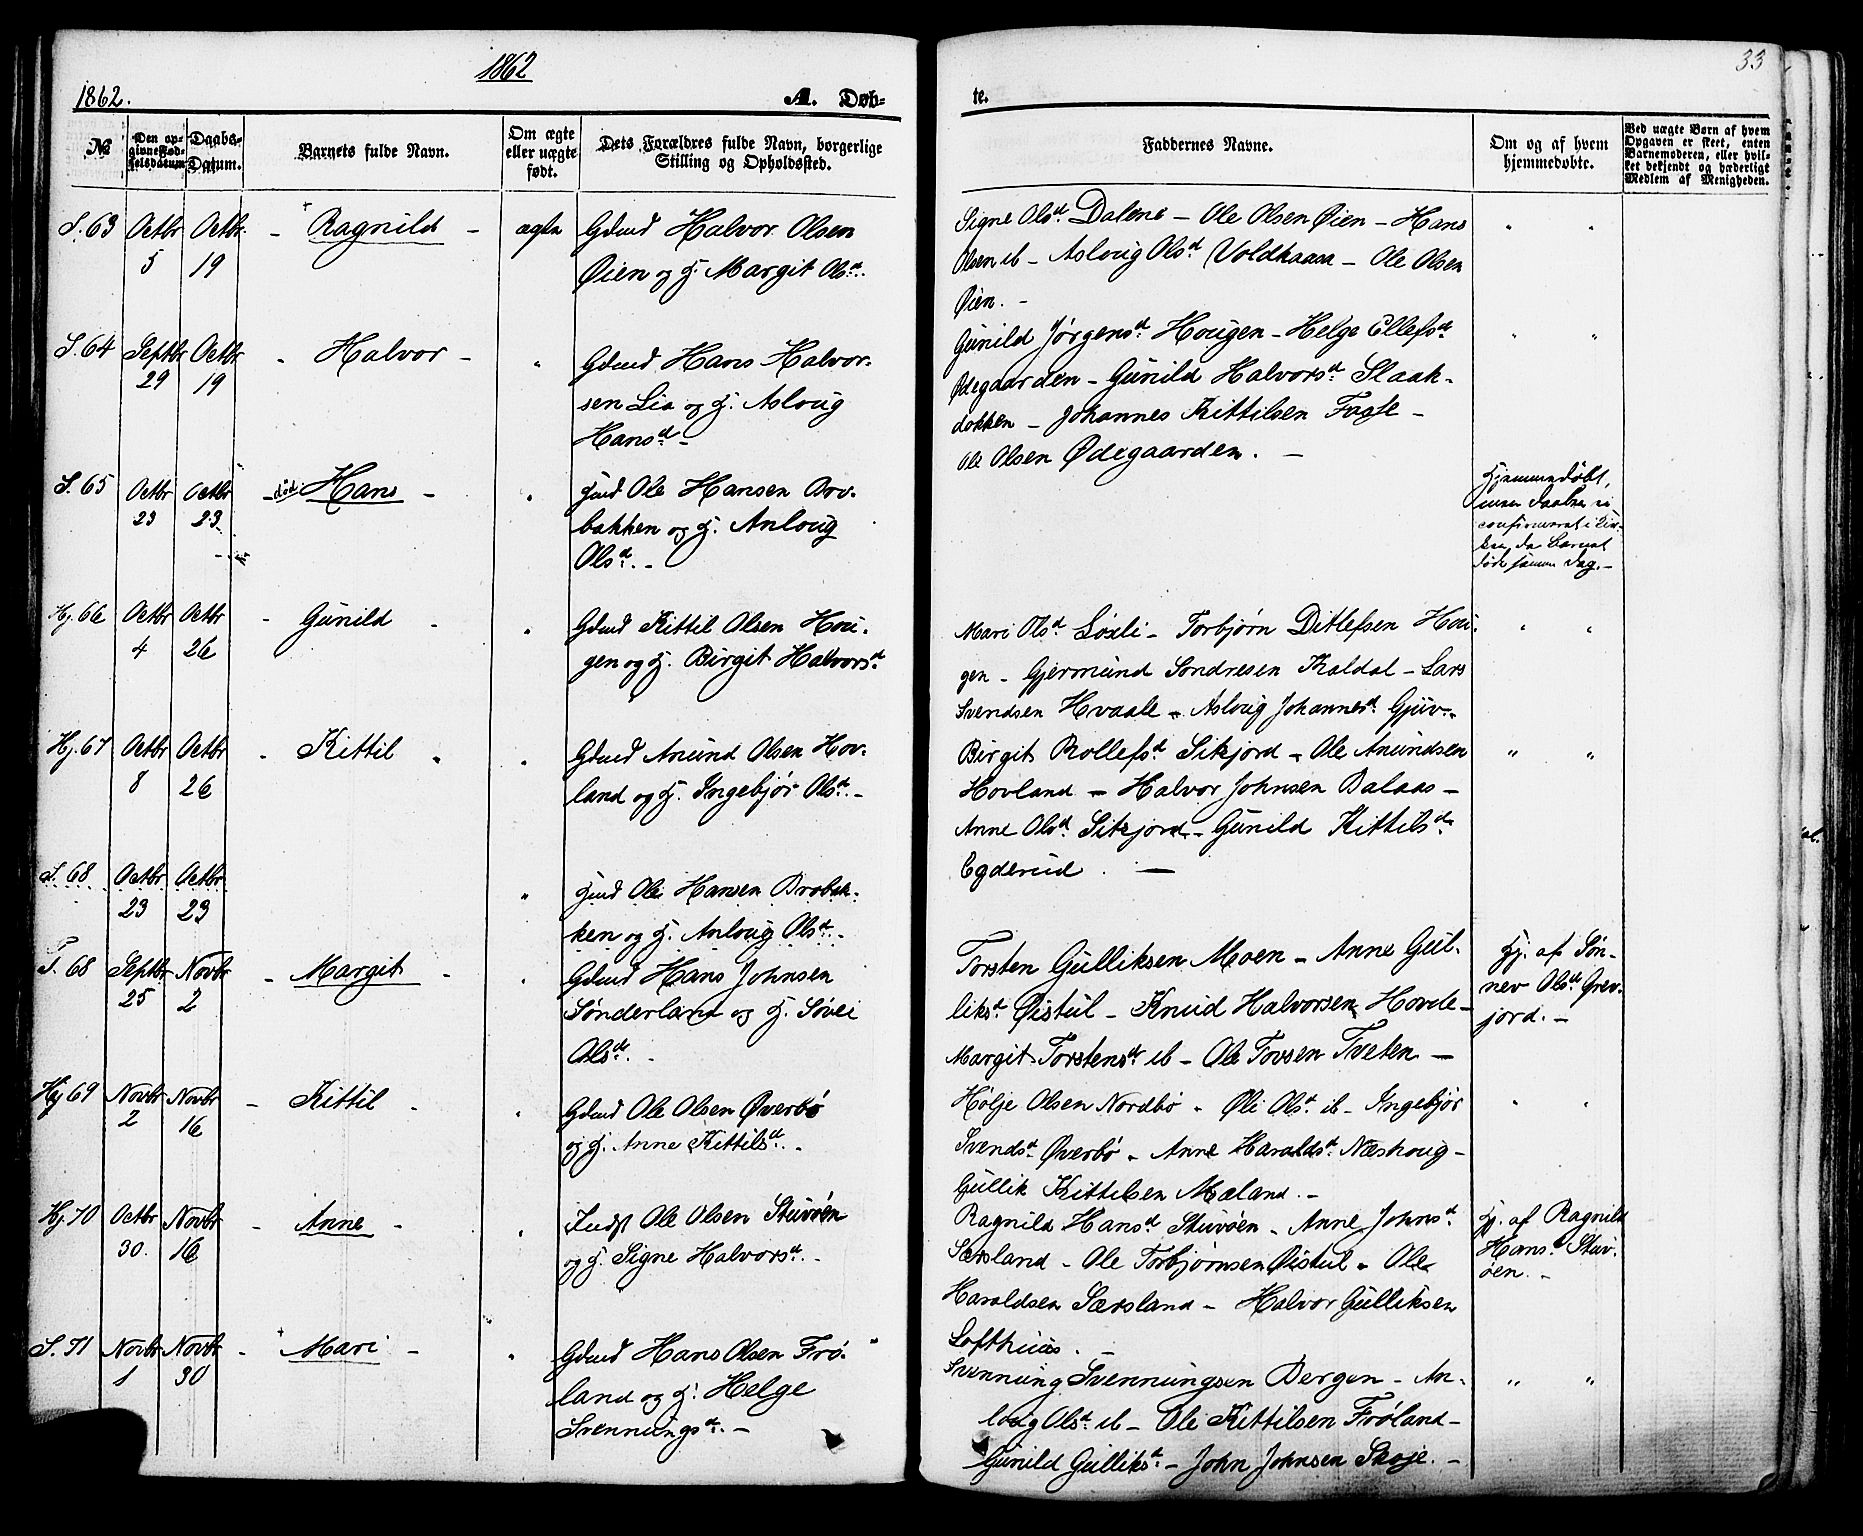 1862
33
1862.
A. Døb-
te.
№
Den opgivne Fødselsdatum
Daabs-Datum.
Barnets fulde Navn.
Om ægte eller uægte født.
Dets Forældres fulde Navn, borgerlige Stilling og Opholdssted.
Faddernes Navne.
Om og af hvem hjemmedøbte.
Ved uægte Børn af hvem Opgaven er skeet, enten Barnemoderen, eller hvilket bekjendt og hæderligt Medlem af Menigheden.
S. 63 Octbr 5 Octbr. 19 - Ragnild - ægte
Gdmd Halvor Olsen
Øien og H. Margit Olsd.
Signe Olsd. Dalene - Ole Olsen Øien - Hans
Olsen ib - Asloug Olsd. Voldhaara - Ole Olsen
Øien. -
S. 64 Septbr 29 Octbr 19 - Halvor - "
Gdmd Hans Halvor-
sen Lia og H. Asloug
Hansd. -
Gunild Jørgensd. Hougen - Helge Ellefsd.
Ødegaarden - Gunild Halvorsd. Slaak-
dokken - Johannes Kittilsen Fagle -
Ole Olsen Ødegaarden. -
S. 65 Octbr 23 Octbr 23 - død Hans - "
Hmd Ole Hansen Bro-
bakken og H. Anloug
Olsd. -
Hjemmedøbt,
men Daaben ei
confirmeret i Kir-
ken, da Barnet
døde samme Dag. -
Hj. 66 Octbr 4 Octbr 26 - Gunild - "
Gdmd Kittil Olsen Hou-
gen og H. Birgit Halvorsd.
Mari Olsd. Løsli - Torbjørn Ditlefsen Hou-
gen - Gjermund Sondresen Kaldal - Lars
Svendsen Hvaale - Asloug Johannesd. Gjuv -
Hj. 67 Octbr 8 Octbr 26 - Kittil - "
Gdmd Anund Olsen Hov-
land og H. Ingebjør Olsd. -
Birgit Rollefsd. Sitjord - Ole Anundsen
Hovland - Halvor Johnsen Balaas -
Anne Olsd. Sitjord - Gunild Kittilsd.
Egderud. -
S. 68 Octbr 23 Octbr 23 "
Hmd Ole Hansen Brobak-
ken og H. Anloug Olsd. -
T. 68 Septbr 25 Novbr 2 - Margit - "
Gdmd Hans Johnsen
Sønderland og H. Søvei
Olsd. -
Torsten Gulliksen Moen - Anne Gul-
liksd. Øistul - Knud Halvorsen Hovde -
Margit Torstensd. ib - Ole Tovsen Tveten -
Hj. af Søn-
nev Olsd. Grev-
jord. -
Hj 69 Novbr 2 Novbr 16 - Kittil - "
Gdmd Ole Olsen Øverbø
og H. Anne Kittilsd. -
Hølje Olsen Nordbø - Øli Olsd. ib - Ingebjør
Svendsd. Øverbø - Anne Haraldsd. Næshoug -
Gullik Kittilsen Mæland. -
Hj. 70 Octbr 30. Novbr 16 - Anne - "
Indst Ole Olsen Stuvøen
og H. Signe Halvorsd. -
Ragnild Hansd. Stuvøen - Anne Johnsd.
Særsland - Ole Torbjørnsen Øistul - Ole
Haraldsen Særsland - Halvor Gulliksen
Lofthuus. -
Hj. af Ragnild
Hansd. Stuv-
øen. -
S. 71 Novbr 1 Novbr 30 - Mari - "
Gdmd Hans Olsen Frø-
land og H. Helge
Svennungsd. -
Svennung Svennungsen Bergen - An-
loug Olsd. ib - Ole Kittilsen Frøland -
Gunild Gulliksd. - John Johnsen Skoje. -